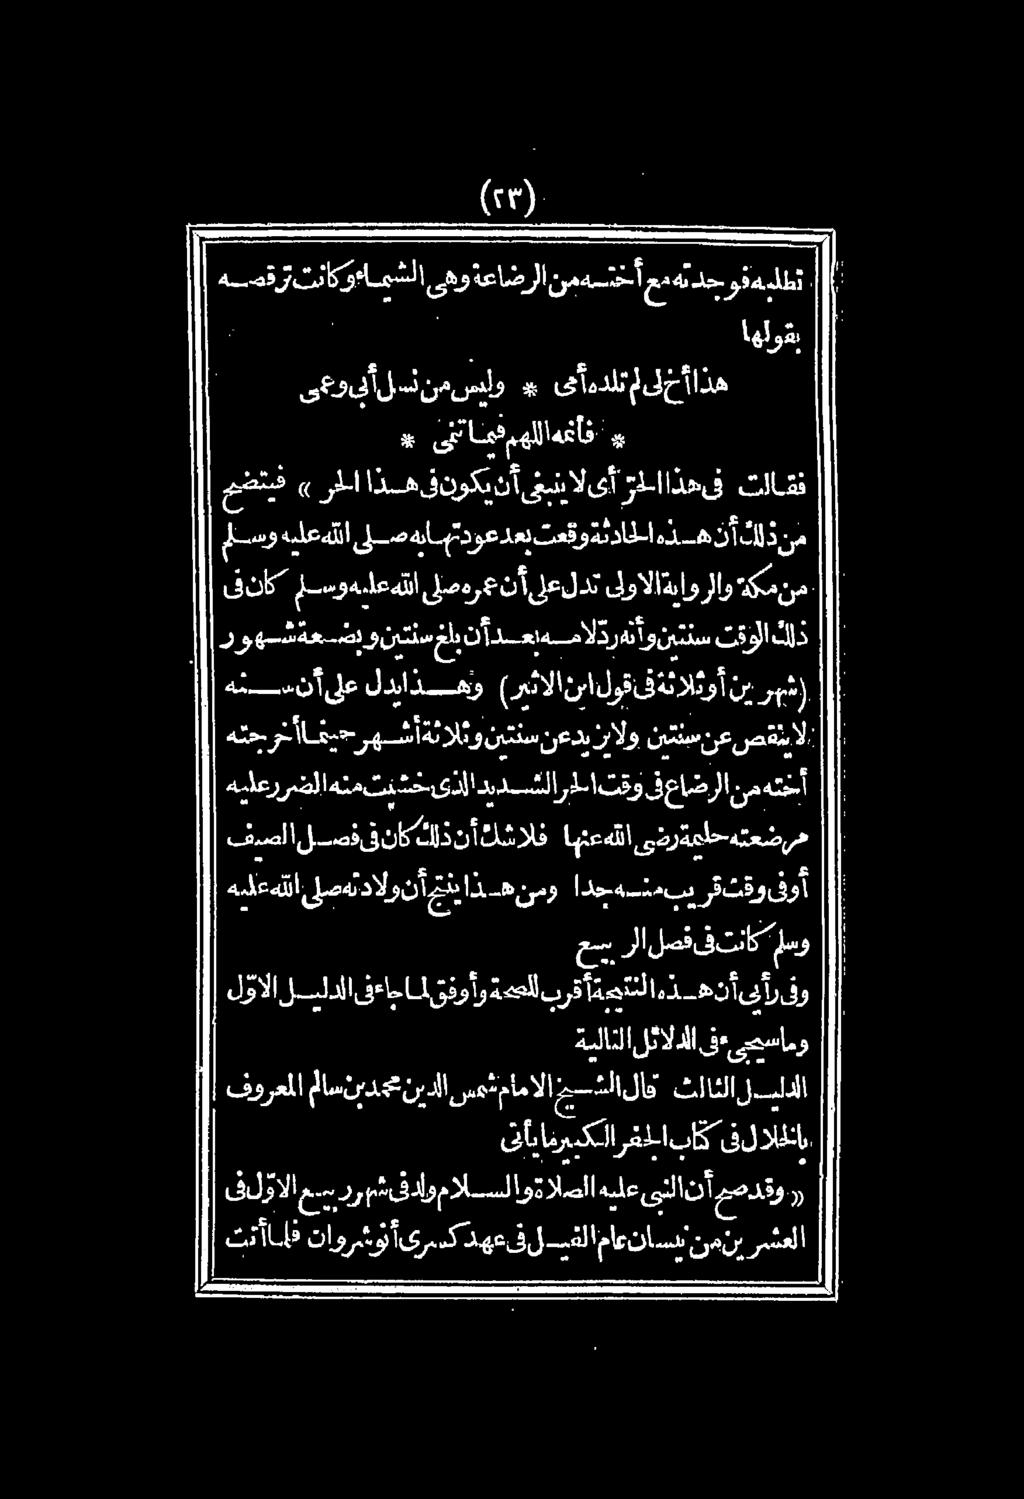 (٢٣)
تطلبه فوجدته مع أخته من الرضاعة وهي الشيماء وكانت ترقصه
بقولها
هذا أخ لي لم تلده أمى * وليس من نسل أبي وعمى
* فأنمه اللهم فيما تنمى *
فقالت في هذا الحرّ أى لا ينبغى أن يكون فى هذا الحر » فيتضح
من ذلك أن هذه الحادثة وقعت بعد عودتها به صلى الله عليه وسلم
من مكة والرواية الاولى تدل على أن عمره صلى الله عليه وسلم كان فى
ذلك الوقت سنتين وأنه ردّ لامه بعد أن بلغ سنتين وبضعة شهور
(شهرين أو ثلاثة فى قول ابن الاثير) وهذا يدل على أن سنه
لا ينقص عن سنتين ولا يزيد عن سنتين وثلاثة أشهر حينما أخرجته
أخته من الرضاع فى وقت الحر الشديد الذى خشيت منه الضرر عليه
مرضعته حليمة رضى الله عنها فلا شك أن ذلك كان فى فصل الصيف
أوفى وقت قريب منه جدا ومن هذا ينتج أن ولادته صلى الله عليه
وسلم كانت فى فصل الربيع
وفى رأيى أن هذه النتيجة أقرب للصحة وأوفق لما جاء فى الدليل الاوّل
وما سيجىء فى الدلائل التالية
الدليل الثالث قال الشيخ الامام شمس الدين محمد بن سالم المعروف
بالخلال فى كتاب الجفر الكبير ما يأتى
« وقد صح أن النبى عليه الصلاة والسلام ولد فى شهر ربيع الاوّل فى
العشرين من نيسان عام الفيل فى عهد كسرى أنوشروان فلما أتت